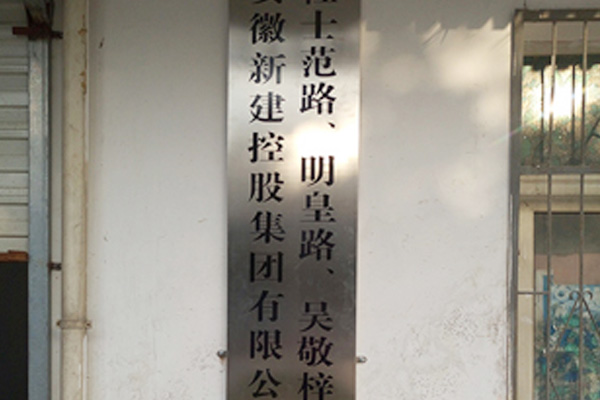 士范路、明皇路、吴敬梓
安徽新建控股集团有限公